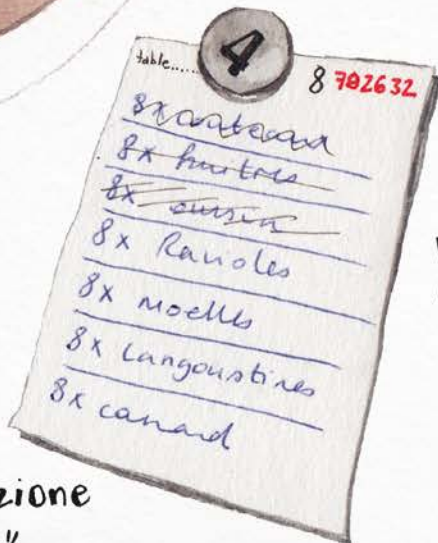 4
table...... 8 782632
8x
8x huitres
8x oursin
8x Ravioles
8x Moelles
8x Langoustines
8x canard
zione
"